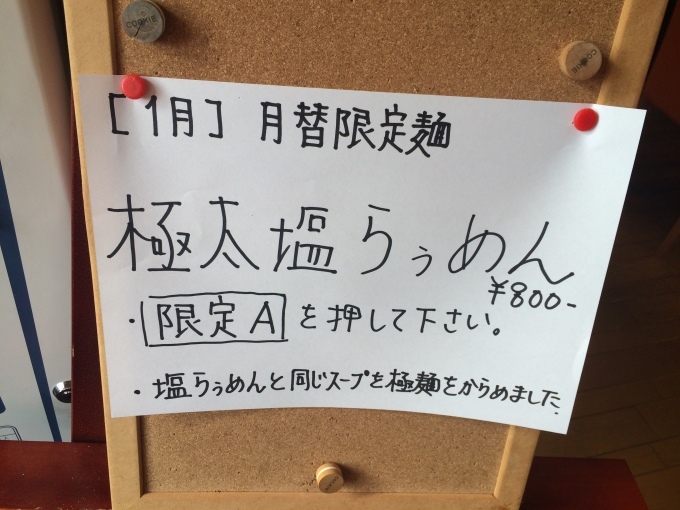 [1月] 月替限定麺
極太塩らぅめん
¥800-
・限定Aを押して下さい。
・塩らぅめんと同じスープを極麺をからめました.
COOKIE